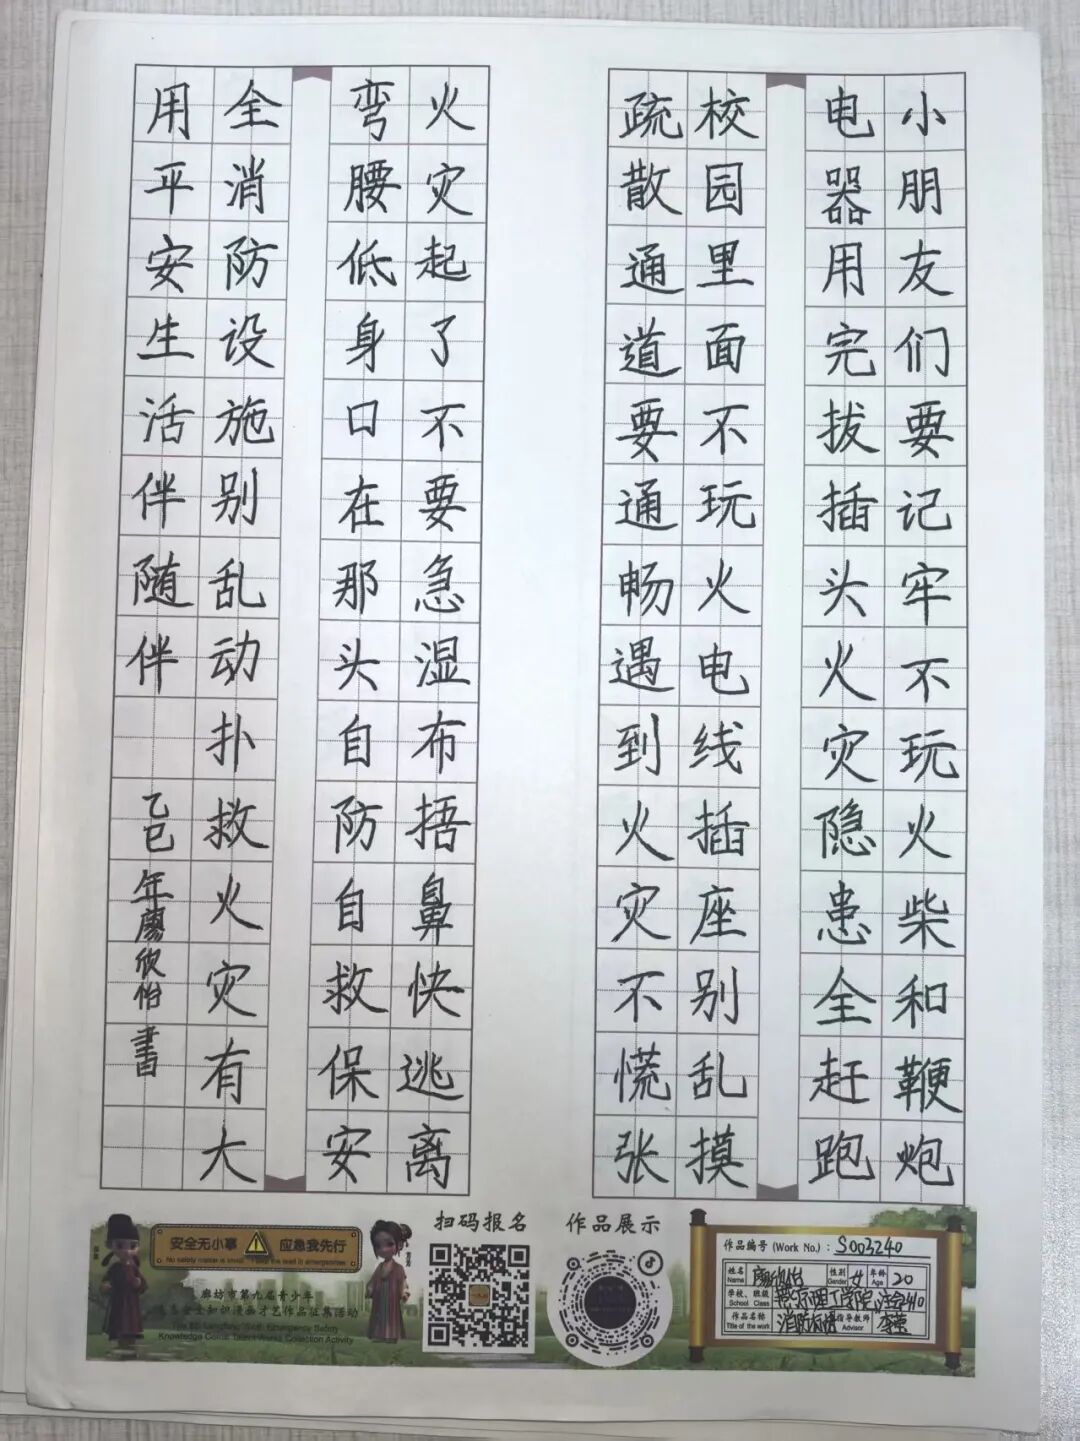 小朋友们要记牢不玩火柴和鞭炮
电器用完拔插头火灾隐患全赶跑
校园里面不玩火电线插座别乱摸
疏散通道要通畅遇到火灾不慌张
火灾起了不要急湿布捂鼻快逃离
弯腰低身口在那头自防自救保安
全消防设施别乱动扑救火灾有大
用平安生活伴随伴
乙巳年廖欣怡書
安全无小事 应急我先行
No safety matter is small, I take the lead in emergencies
廊坊市第九届青少年
应急安全知识漫画才艺作品征集活动
Knowledge Comic Talent Works Collection Activity
扫码报名
作品展示
作品编号 (Work No.): S003240
姓名 Name 廖欣怡 性别 Gender 女 年龄 Age 20
学校、班级 School Class
作品名称 Title of the work 指导教师 Advisor